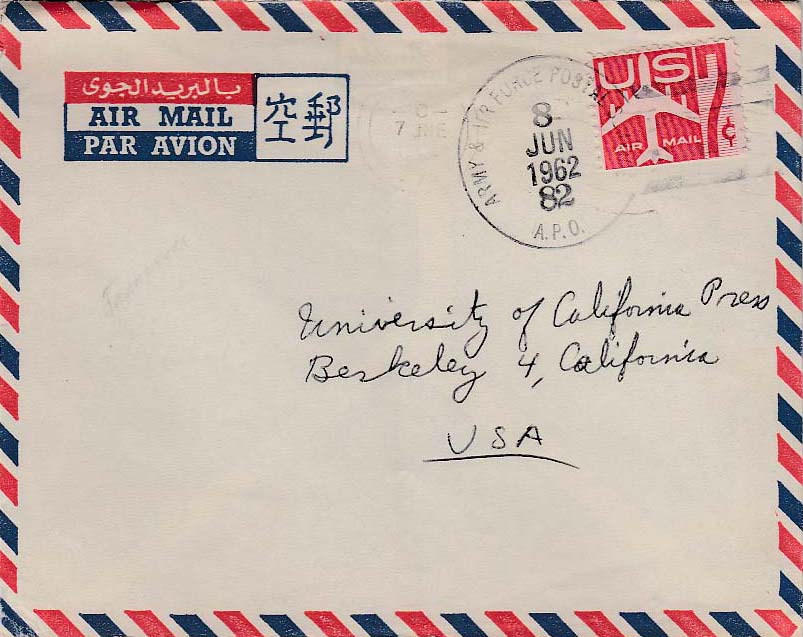 بالبريد الجوى
AIR MAIL
PAR AVION
郵空
7
ARMY & AIR FORCE POSTAL
8
JUN
1962
82
A.P.O.
US
AIR MAIL
7¢
University of California Press
Berkeley 4, California
USA